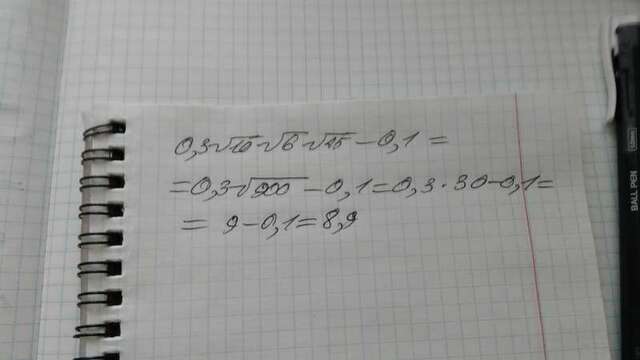 0,3√10 √6 √15 – 0,1 =
= 0,3√900 – 0,1 = 0,3 · 30 – 0,1 =
= 9 – 0,1 = 8,9
BALL PEN